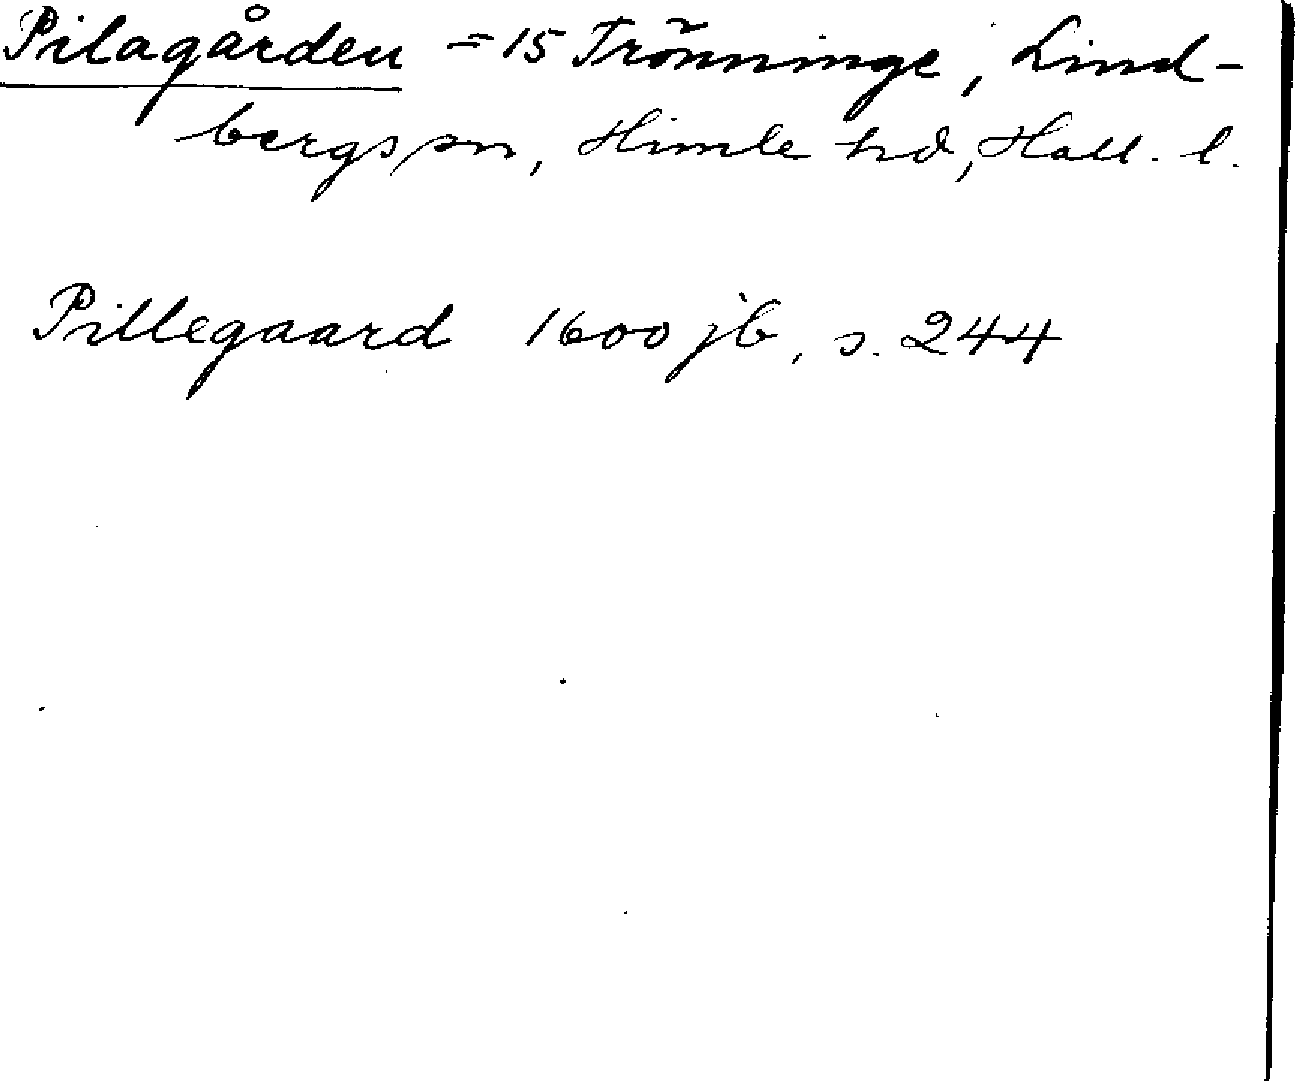 Pilagården = 15 Trönninge, Lind-
bergs sn, Himle hd, Hall. l.
Pillegaard 1600 jb, s. 244